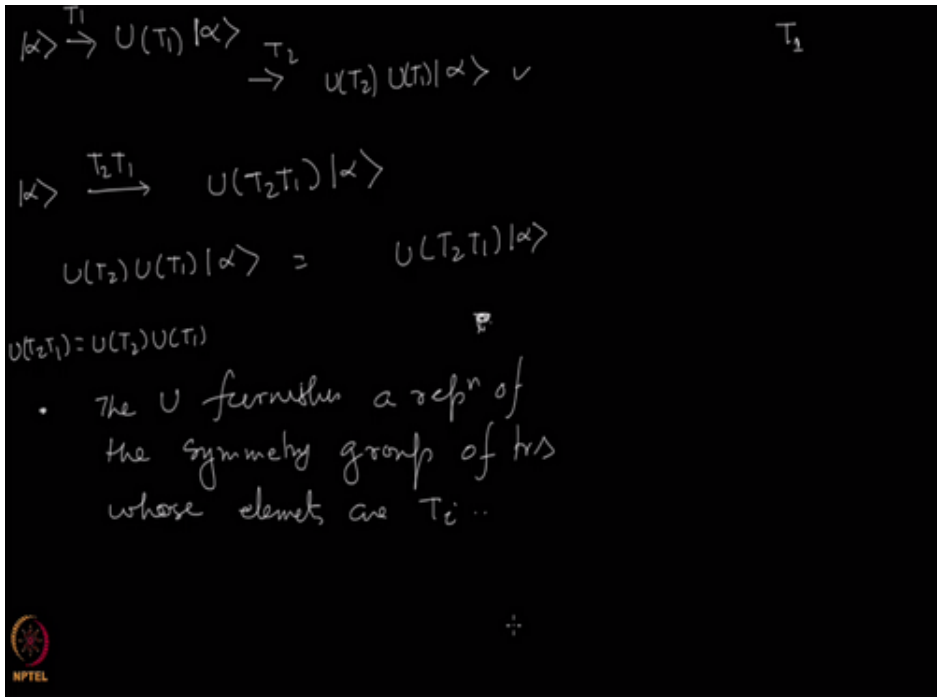 |α⟩ T1→ U(T1) |α⟩
T2→ U(T2) U(T1) |α⟩ ✓
T1
|α⟩ T2T1→ U(T2T1) |α⟩
U(T2) U(T1) |α⟩ = U(T2T1) |α⟩
U(T2T1) = U(T2) U(T1)
• The U furnishes a repⁿ of
the symmetry group of trs
whose elemets are Ti ..
NPTEL